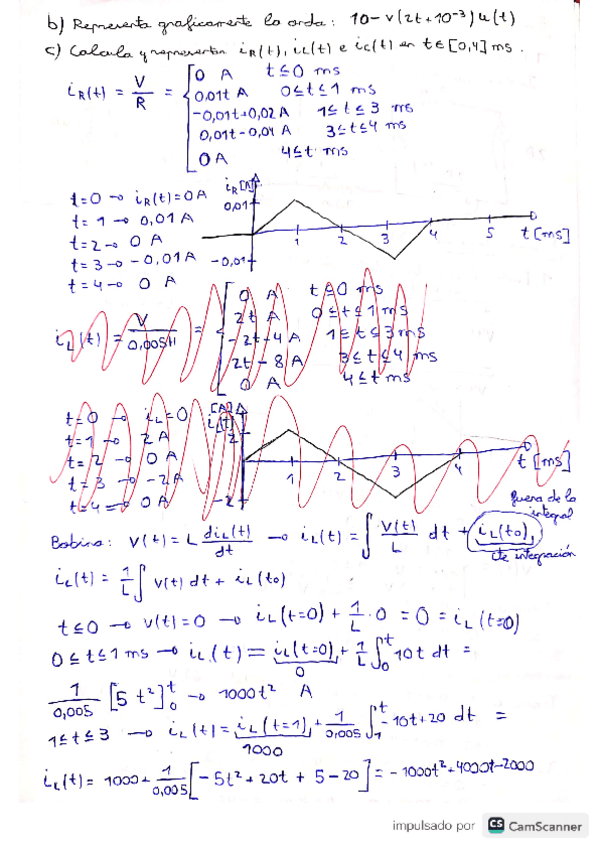 b) Representa graficamente la onda: 10-v(2t+10⁻³)u(t)
c) Calcula y representa iR(t), iL(t) e iC(t) en t∈[0,4] ms.
iR(t) = V/R = { 0 A t≤0 ms
0,01t A 0≤t≤1 ms
-0,01t+0,02 A 1≤t≤3 ms
0,01t-0,04 A 3≤t≤4 ms
0 A 4≤t ms
t=0 → iR(t)=0 A
t=1 → 0,01 A
t=2 → 0 A
t=3 → -0,01 A
t=4 → 0 A
iR[A]
0,01
-0,01
1 2 3 4 5 t[ms]
iL(t) = V/0,005H = { 0 A t≤0 ms
2t A 0≤t≤1 ms
-2t+4 A 1≤t≤3 ms
2t-8 A 3≤t≤4 ms
0 A 4≤t ms
t=0 → iL=0
t=1 → 2 A
t=2 → 0 A
t=3 → -2 A
t=4 → 0 A
[A]
2
-2
1 2 3 4 t[ms]
fuera de la integral
Bobina: v(t) = L diL(t)/dt → iL(t) = ∫ v(t)/L dt + iL(t0),
cte integración
iL(t) = 1/L ∫ v(t) dt + iL(t0)
t≤0 → v(t)=0 → iL(t=0) + 1/L · 0 = 0 = iL(t=0)
0≤t≤1 ms → iL(t) = iL(t=0) + 1/L ∫₀ᵗ 10t dt =
0
1/0,005 [5t²]₀ᵗ → 1000t² A
1≤t≤3 → iL(t) = iL(t=1) + 1/0,005 ∫₁ᵗ -10t+20 dt =
1000
iL(t) = 1000 + 1/0,005 [-5t² + 20t + 5 - 20] = -1000t²+4000t-2000
impulsado por CS CamScanner